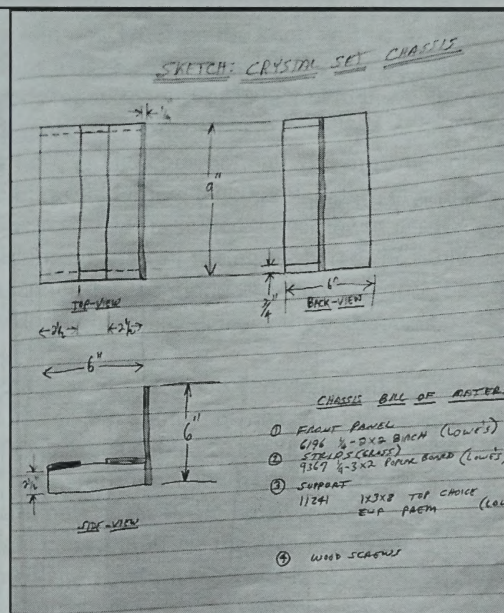 SKETCH: CRYSTAL SET CHASSIS
9"
3/4"
6"
TOP-VIEW
BACK-VIEW
2 1/2
2 1/2
6"
6"
2 1/2
SIDE-VIEW
CHASSIS BILL OF MATER
① FRONT PANEL
6196 1/4-2x2 BIRCH (LOWE'S)
② STRIPS (CROSS)
9367 1/4-3x2 POPLAR BOARD (LOWE'S
③ SUPPORT
11241 1x3x8 TOP CHOICE
EWP (LOW
④ WOOD SCREWS